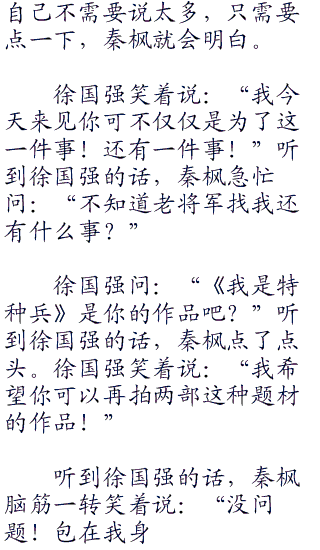 自己不需要说太多，只需要
点一下，秦枫就会明白。
徐国强笑着说：“我今
天来见你可不仅仅是为了这
一件事！还有一件事！”听
到徐国强的话，秦枫急忙
问：“不知道老将军找我还
有什么事？”
徐国强问：“《我是特
种兵》是你的作品吧？”听
到徐国强的话，秦枫点了点
头。徐国强笑着说：“我希
望你可以再拍两部这种题材
的作品！”
听到徐国强的话，秦枫
脑筋一转笑着说：“没问
题！包在我身